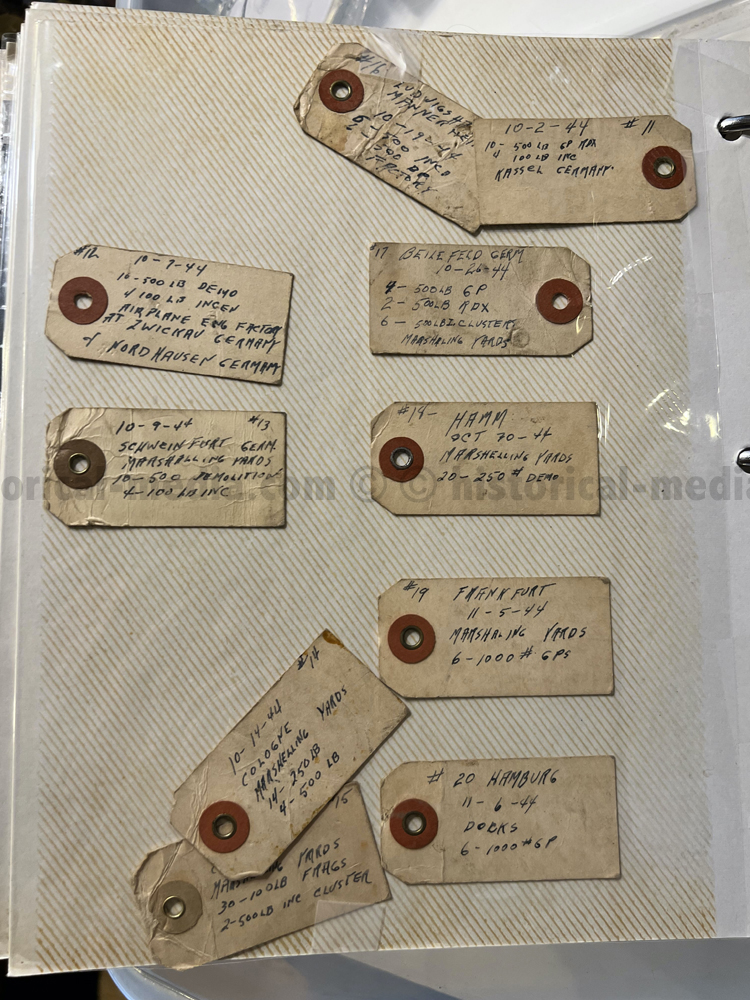 #16
LUDWIGSH
MANNER
10-19-44
6-500 INCD
2 500 GP
FACTORY
10-2-44 #11
10- 500 LB GP RDX
4 100 LB INC
KASSEL GERMANY.
#12 10-7-44
10-500 LB DEMO
4 100 LB INCEN
AIRPLANE ENG FACTORY
AT ZWICKAU GERMANY
& NORDHAUSEN GERMANY
#17 BEILEFELD GERM
10-26-44
4- 500LB GP
2- 500LB RDX
6- 500LB I CLUSTERS
MARSHALING YARDS
10-9-44 #13
SCHWEINFURT GERM.
MARSHALLING YARDS
10-500 DEMOLITION
4-100 LB INC
#18- HAMM
OCT 30-44
MARSHELLING YARDS
20-250# DEMO
#19 FRANKFURT
11-5-44
MARSHALING YARDS
6-1000# GPS
#14
10-14-44
COLOGNE
MARSHELLING YARDS
14-250LB
4-500 LB
#20 HAMBURG
11-6-44
DOCKS
6-1000#GP
15
YARDS
30-100LB FRAGS
2-500LB INC CLUSTER
.com © © historical-media